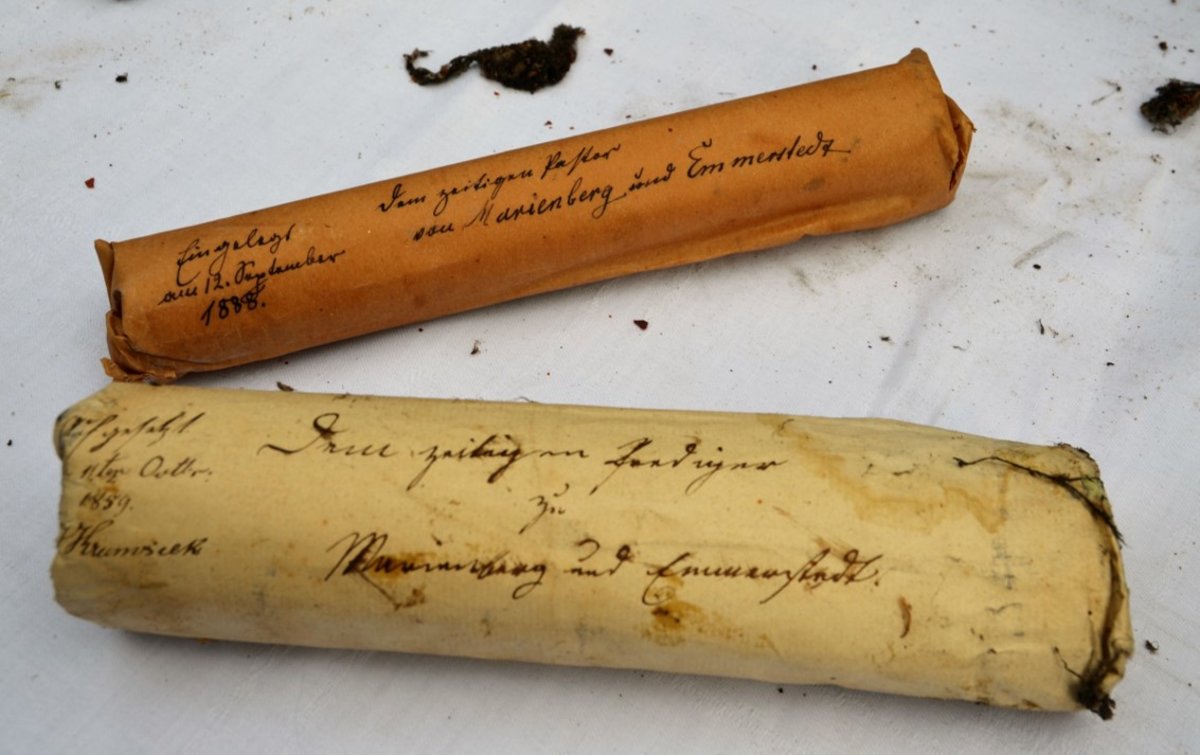 Eingelegt
am 12. September
1888.
Dem zeitigen Pastor
von Marienberg und Emmerstedt
Aufgesetzt
11ten Octbr.
1859.
Dem zeitigen Prediger
zu
Marienberg und Emmerstedt.